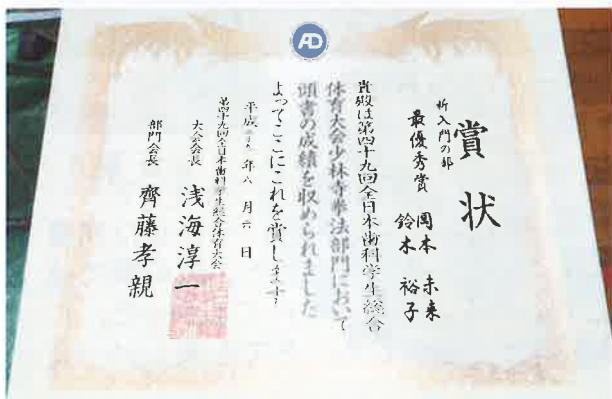 賞状
新入門の部
最優秀賞
岡本 未来
鈴木 裕子
貴殿は第四十九回全日本歯科学生総合
体育大会少林寺拳法部門において
頭書の成績を収められました
よってここにこれを賞します
平成 年八月六日
第四十九回全日本歯科学生総合体育大会
大会会長 浅海淳一
部門会長 齊藤孝親
AD